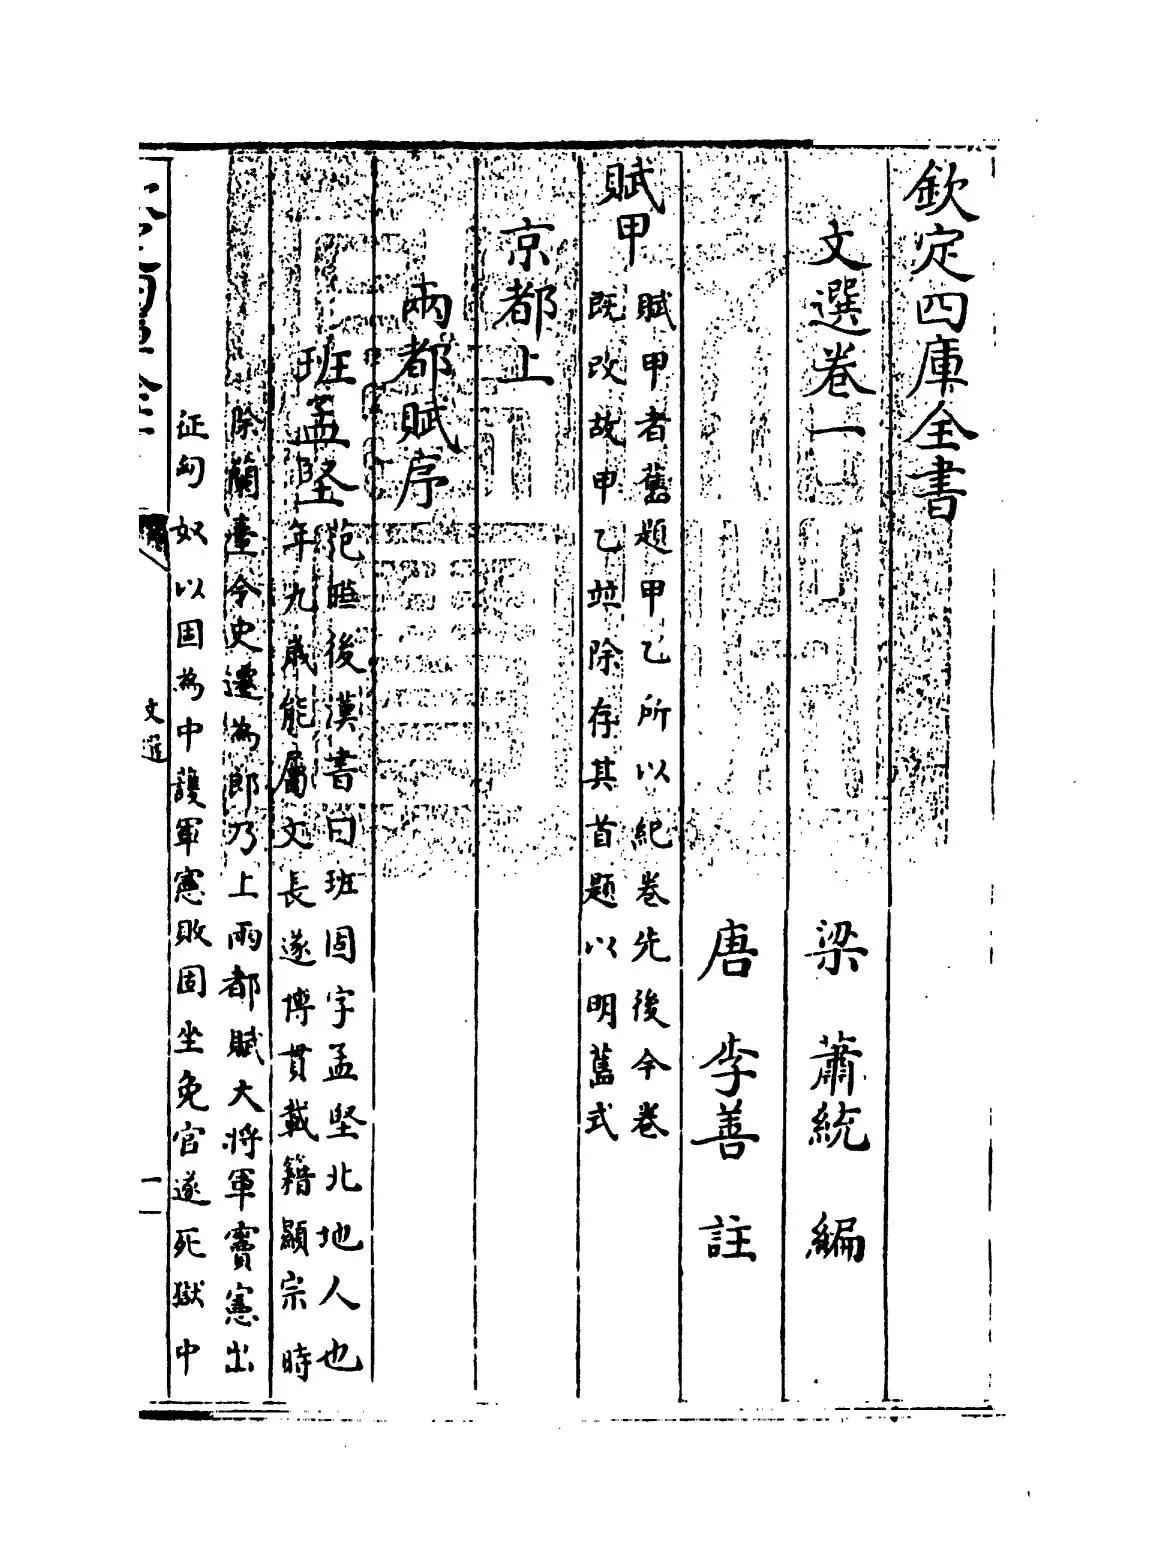 欽定四庫全書
文選卷一
梁 蕭統 編
唐 李善 註
賦甲
賦甲者舊題甲乙所以紀卷先後今卷
既改故甲乙並除存其首題以明舊式
京都上
兩都賦序
班孟堅
范曄後漢書曰班固字孟堅北地人也
年九歲能屬文長遂博貫載籍顯宗時
除蘭臺令史遷為郎乃上兩都賦大將軍竇憲出
征匈奴以固為中護軍憲敗固坐免官遂死獄中
文選
一